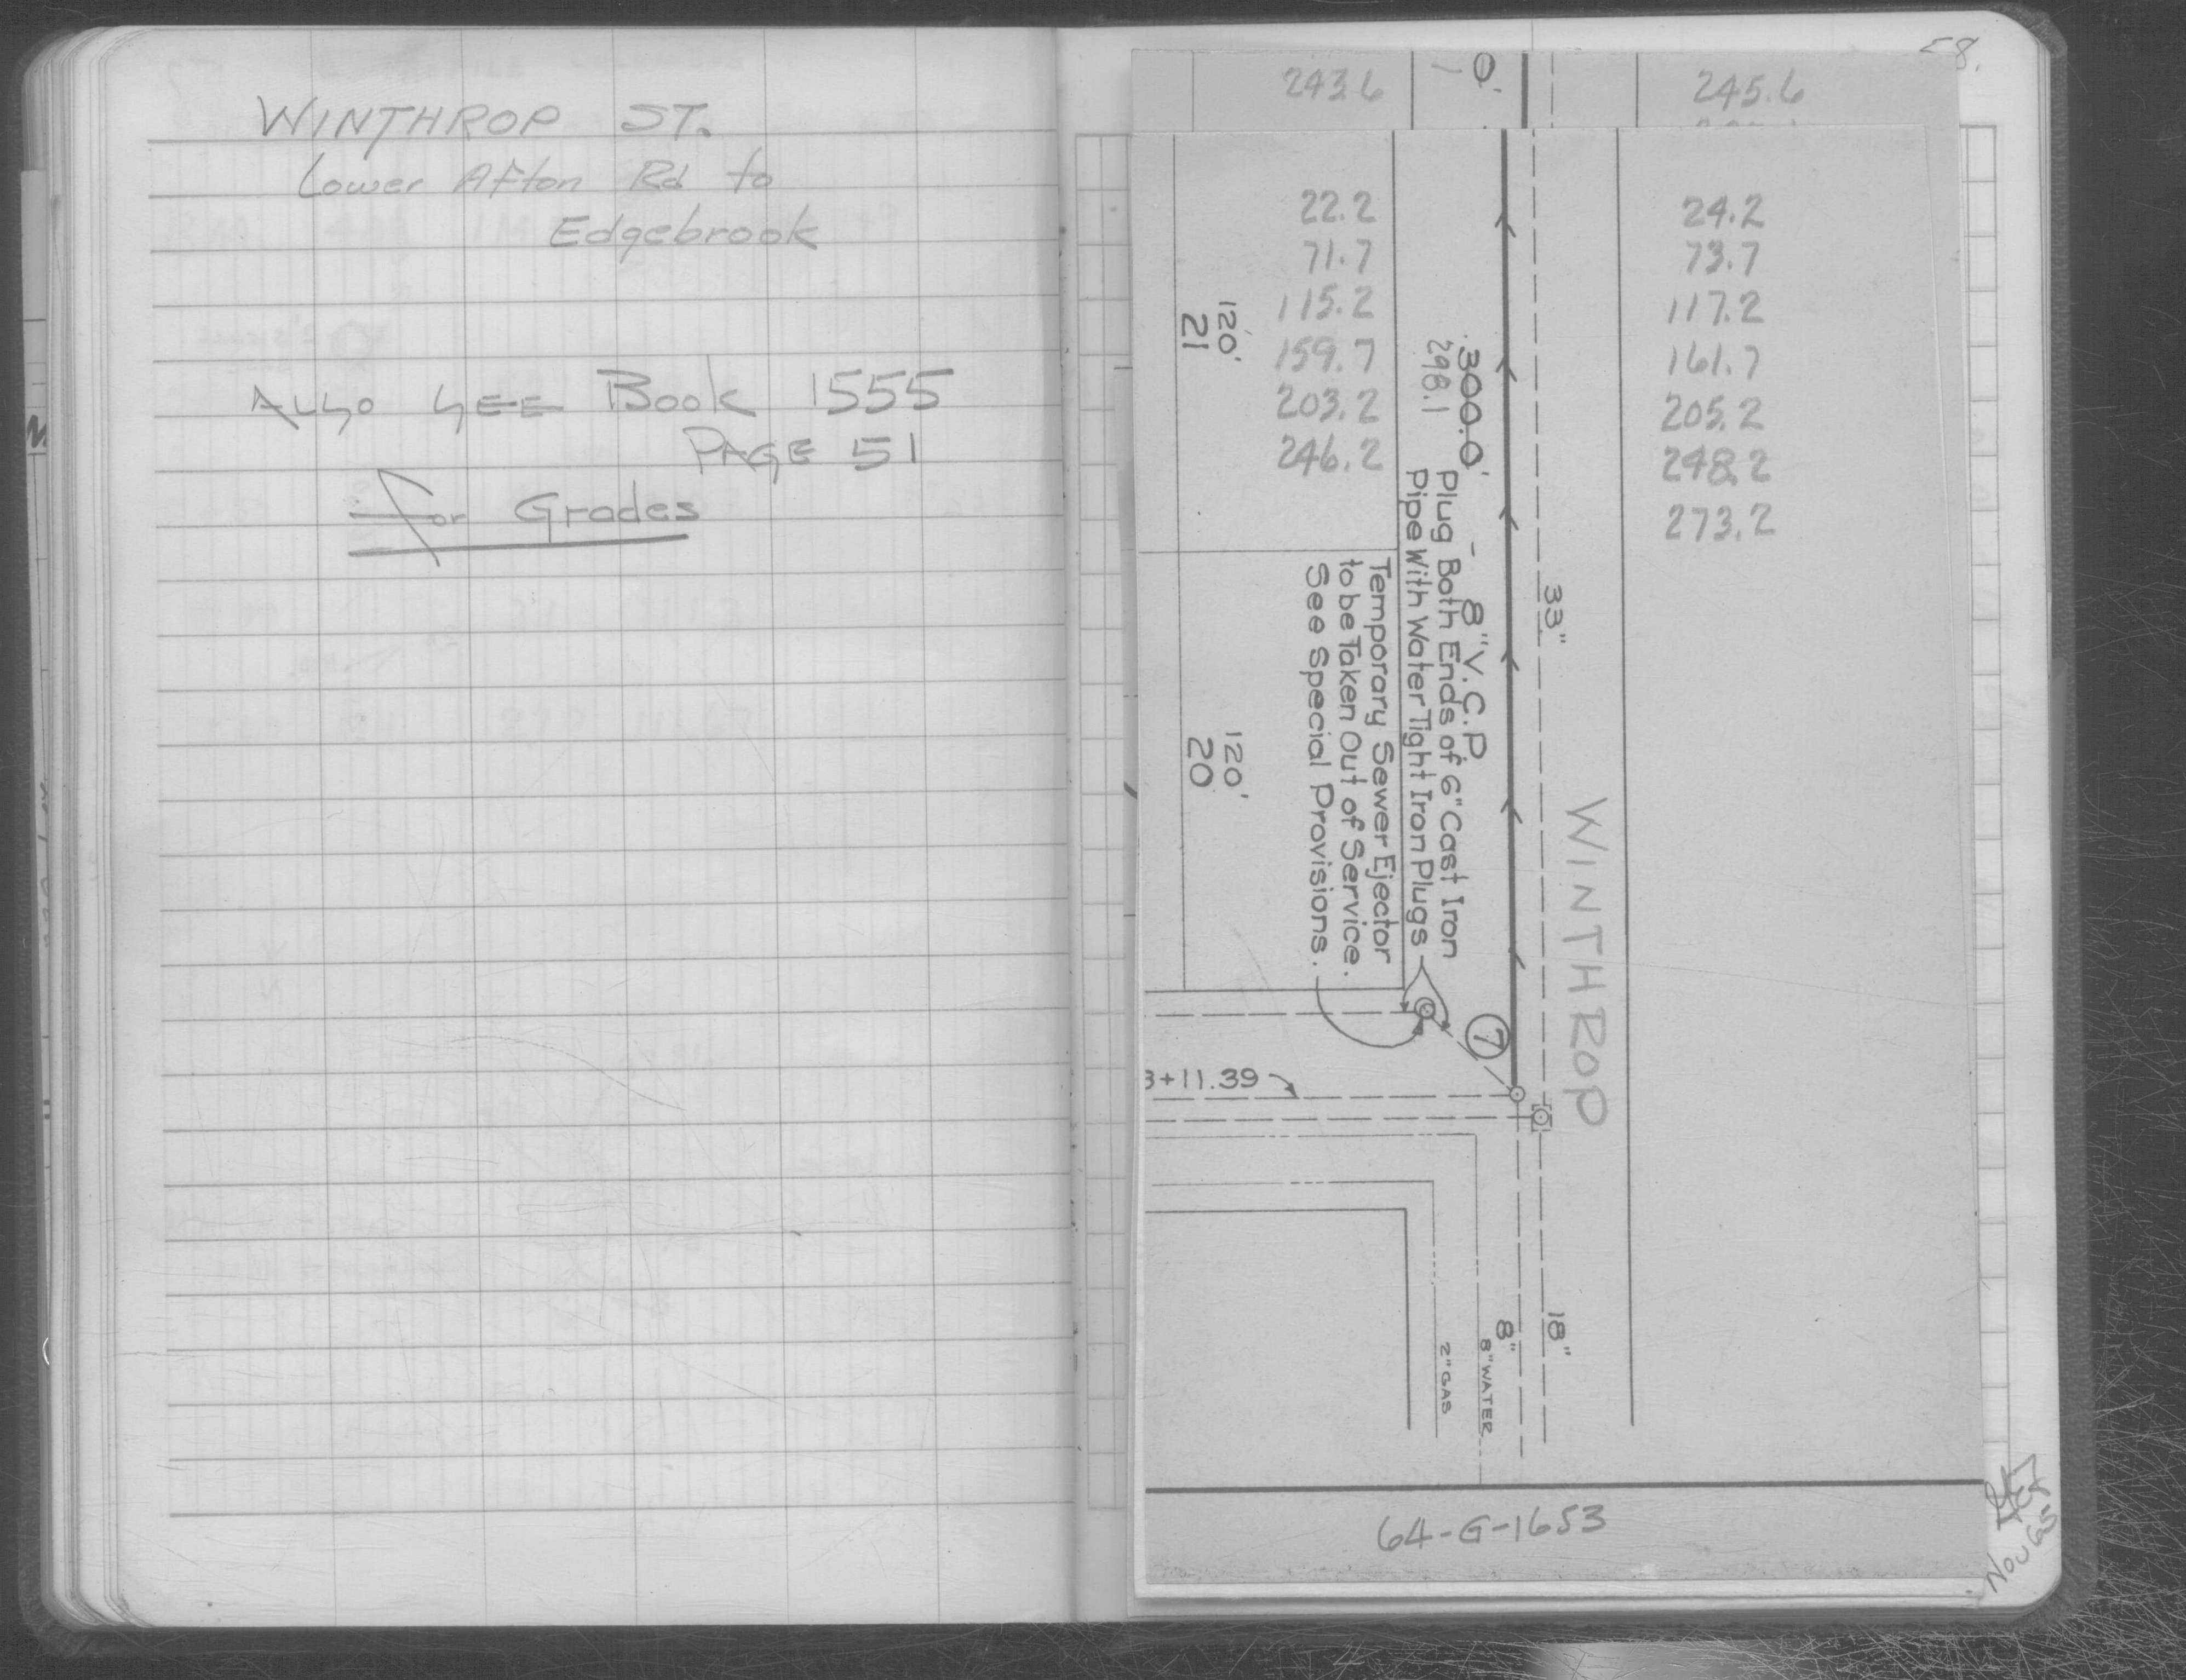 WINTHROP ST.
Lower Afton Rd to
Edgebrook
ALSO SEE Book 1555
PAGE 51
for Grades
58.
243.6
0'
245.6
22.2
71.7
115.2
159.7
203.2
246.2
24.2
73.7
117.2
161.7
205.2
248.2
273.2
120'
21
120'
20
300.0' - 8" V.C.P
298.1
Plug Both Ends of 6" Cast Iron
Pipe With Water Tight Iron Plugs
Temporary Sewer Ejector
to be Taken Out of Service.
See Special Provisions.
33"
WINTHROP
7
3+11.39
18"
8"
8" WATER
2" GAS
64-G-1653
Nov 65